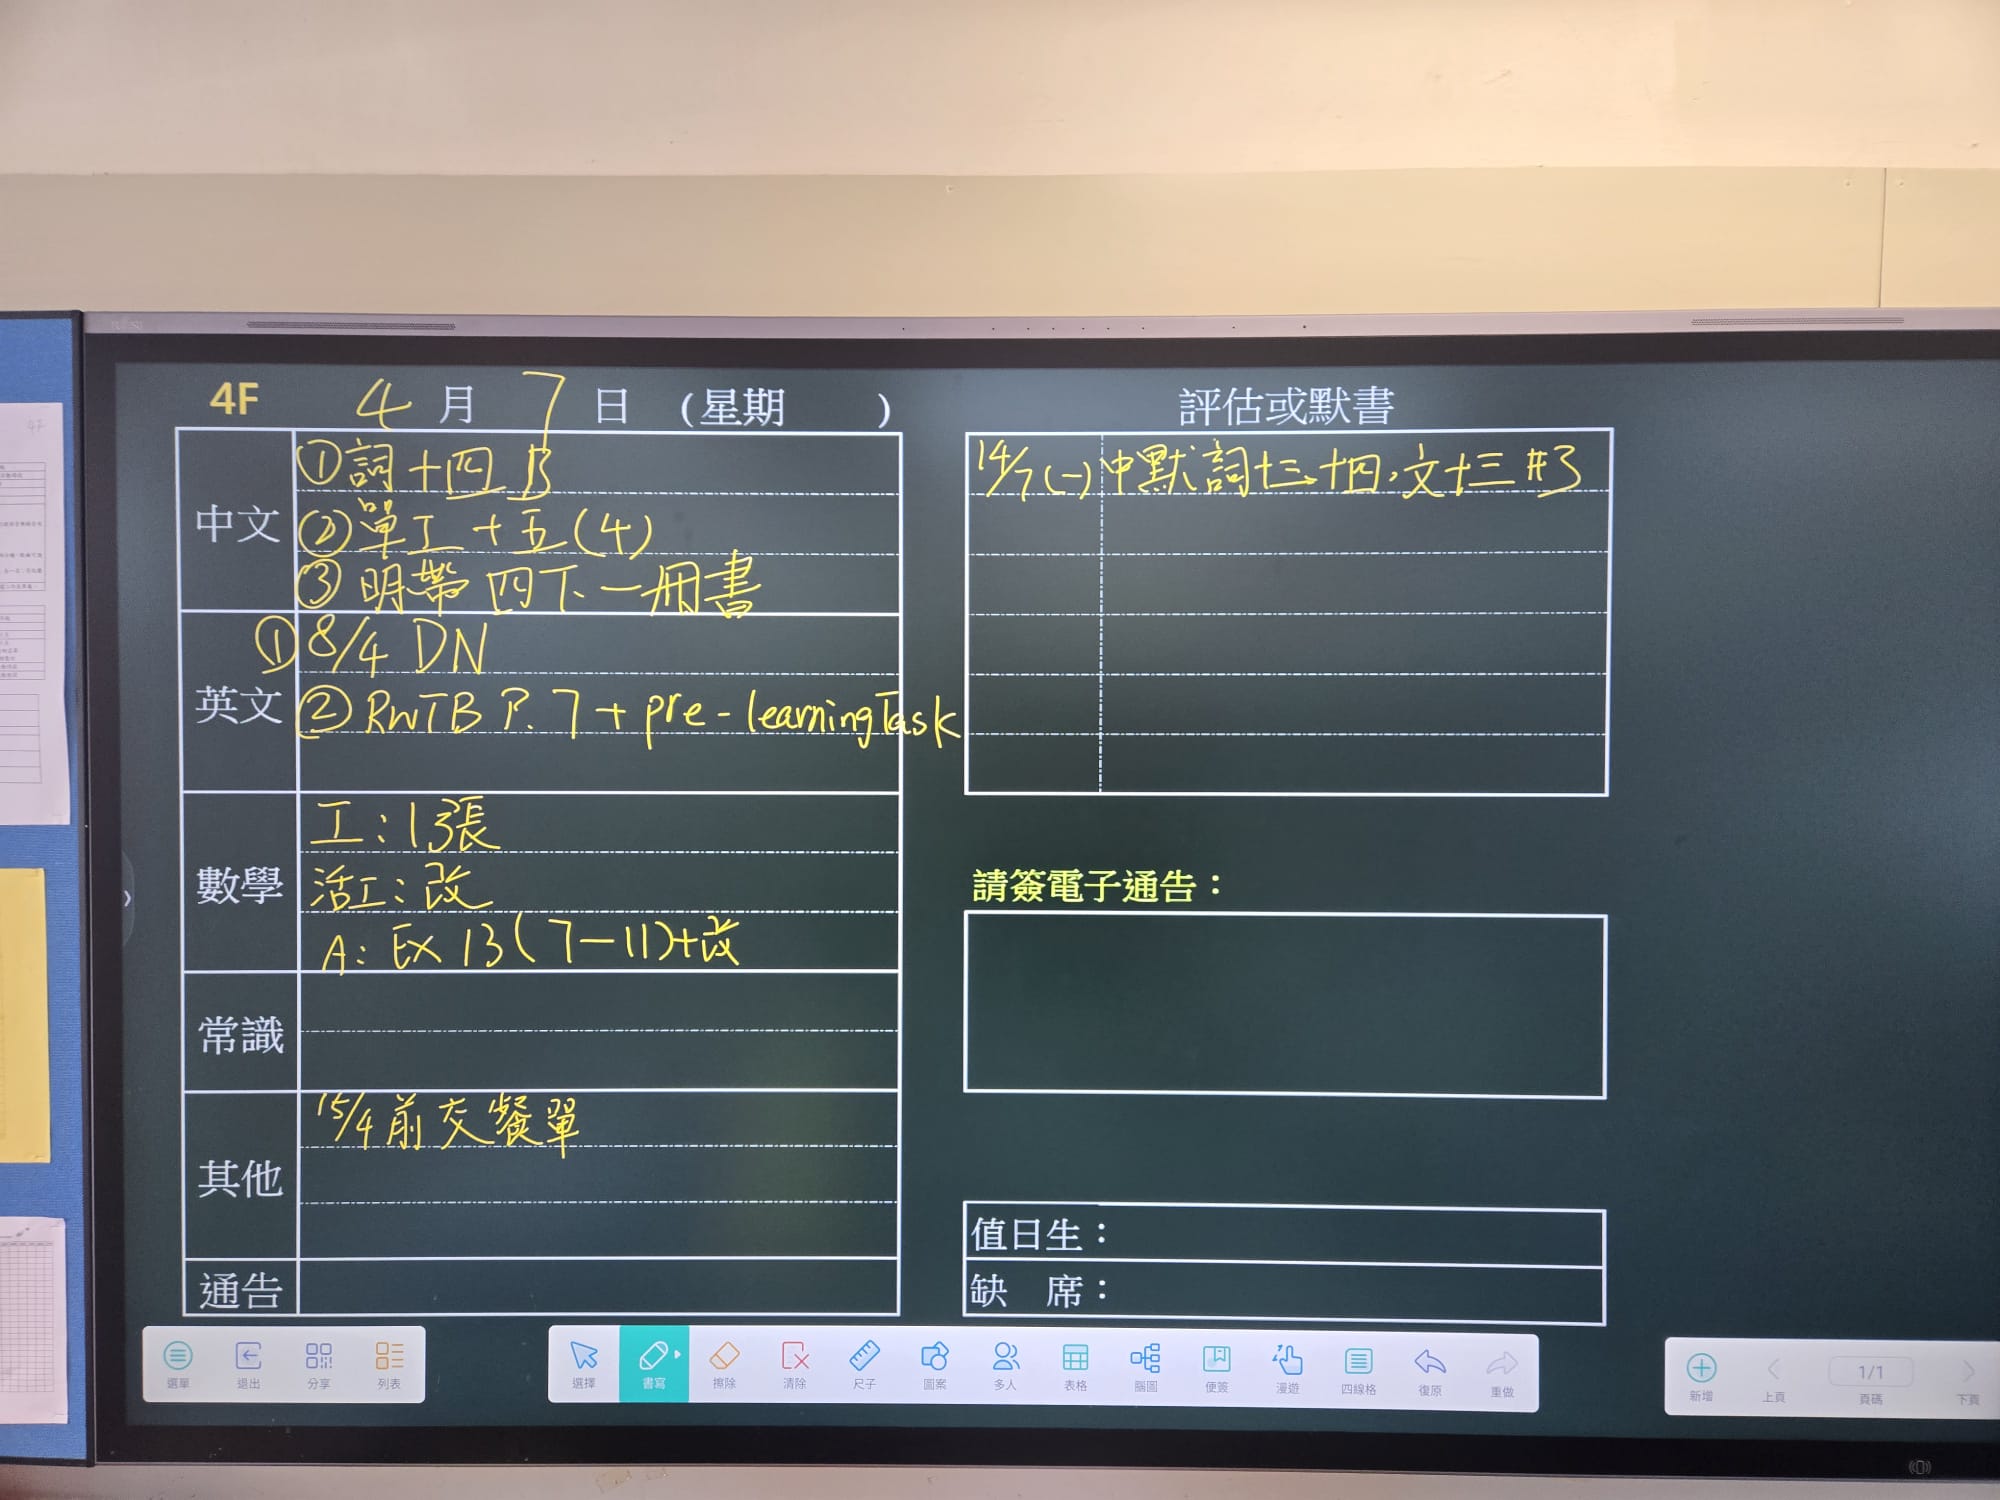 4F 4月7日 (星期 )
中文
①詞十四B
②單工十五(4)
③明帶四下一冊書
英文
①8/4 DN
②RWTB P.7+pre-learningTask
數學
工:13張
活工:改
A: EX 13(7-11)+改
常識
其他
15/4前交餐單
通告
評估或默書
14/7(一)中默詞十三、十四,文十三#3
請簽電子通告:
值日生:
缺 席:
選單 退出 分享 列表
選擇 書寫 擦除 清除 尺子 圖案 多人 表格 腦圖 便簽 漫遊 四線格 復原 重做
新增 上頁 1/1 頁碼 下頁